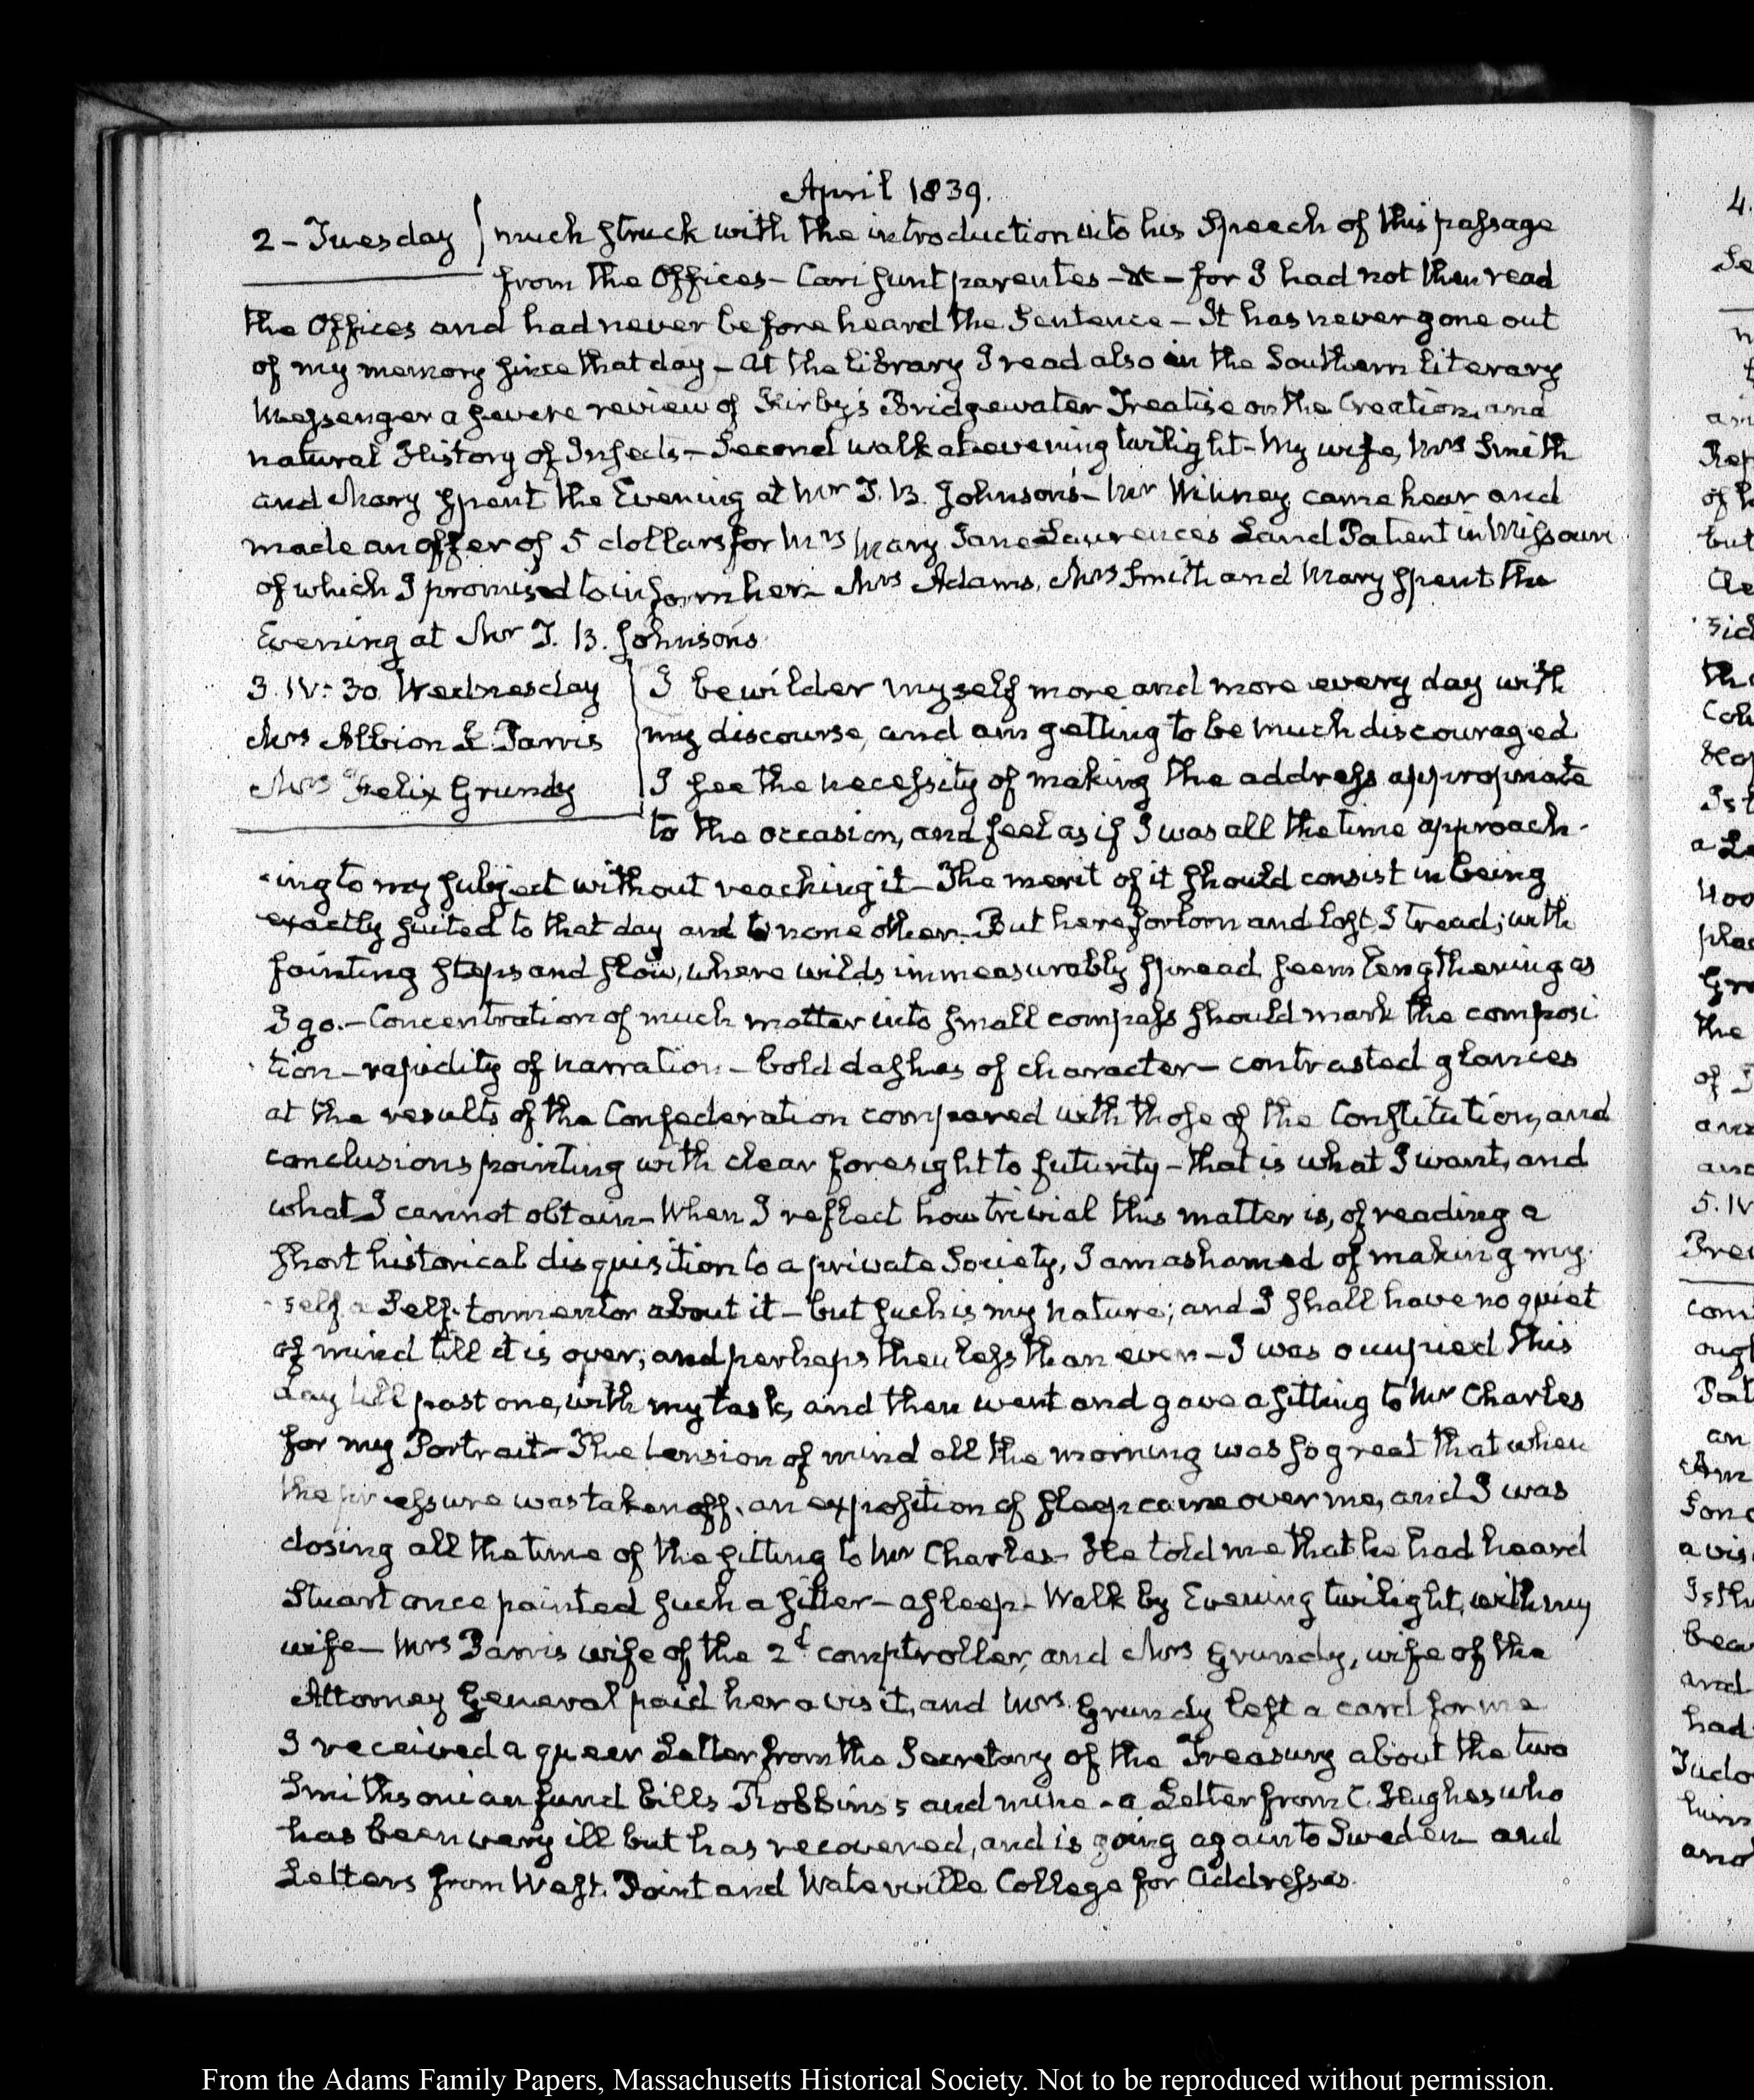 April 1839.
2 – Tuesday
much struck with the introduction into his Speech of this passage
from the Offices – Cari sunt parentes – &c – for I had not then read
the Offices and had never before heard the Sentence – It has never gone out
of my memory since that day – At the library I read also in the Southern literary
Messenger a severe review of Kirby's Bridgewater Treatise on the Creation, and
natural History of Insects – Second walk at evening twilight – My wife, Mrs Smith
and Mary spent the Evening at Mr T. B. Johnson's – Mr Whitney came hear and
made an offer of 5 dollars for Mrs Mary Jane Lawrence's Land Patent in Missouri
of which I promised to inform her – Mrs Adams, Mrs Smith and Mary spent the
Evening at Mr T. B. Johnsons
3. IV: 30. Wednesday
Mrs Albion K Parris
Mrs Felix Grundy
I bewilder myself more and more every day with
my discourse, and am getting to be much discouraged
I see the necessity of making the address appropriate
to the occasion, and feel as if I was all the time approach-
-ing to my subject without reaching it – The merit of it should consist in being
exactly suited to that day and to none other – But here forlorn and lost I tread; with
fainting steps and slow, where wilds immeasurably spread seem lengthening as
I go. – Concentration of much matter into small compass should mark the composi
tion – rapidity of narration – bold dashes of character – contrasted glances
at the results of the Confederation compared with those of the Constitution, and
conclusions pointing with clear foresight to futurity – that is what I want, and
what I cannot obtain – When I reflect how trivial this matter is, of reading a
short historical disquisition to a private Society, I am ashamed of making my-
-self a Self-tormentor about it – but such is my nature; and I shall have no quiet
of mind till it is over; and perhaps then less than ever – I was occupied this
day till past one, with my task, and then went and gave a sitting to Mr Charles
for my Portrait – The tension of mind all the morning was so great that when
the pressure was taken off, an exposition of sleep came over me, and I was
dosing all the time of the sitting to Mr Charles – He told me that he had heard
Stuart once painted such a sitter – asleep – Walk by Evening twilight, with my
wife – Mrs Parris wife of the 2d comptroller, and Mrs Grundy, wife of the
Attorney General paid her a visit, and Mrs Grundy left a card for me
I received a queer Letter from the Secretary of the Treasury about the two
Smithsonian fund bills Robbins's and mine – a Letter from C. Hughes who
has been very ill but has recovered, and is going again to Sweden – and
Letters from West-Point and Waterville College for Addresses.
From the Adams Family Papers, Massachusetts Historical Society. Not to be reproduced without permission.